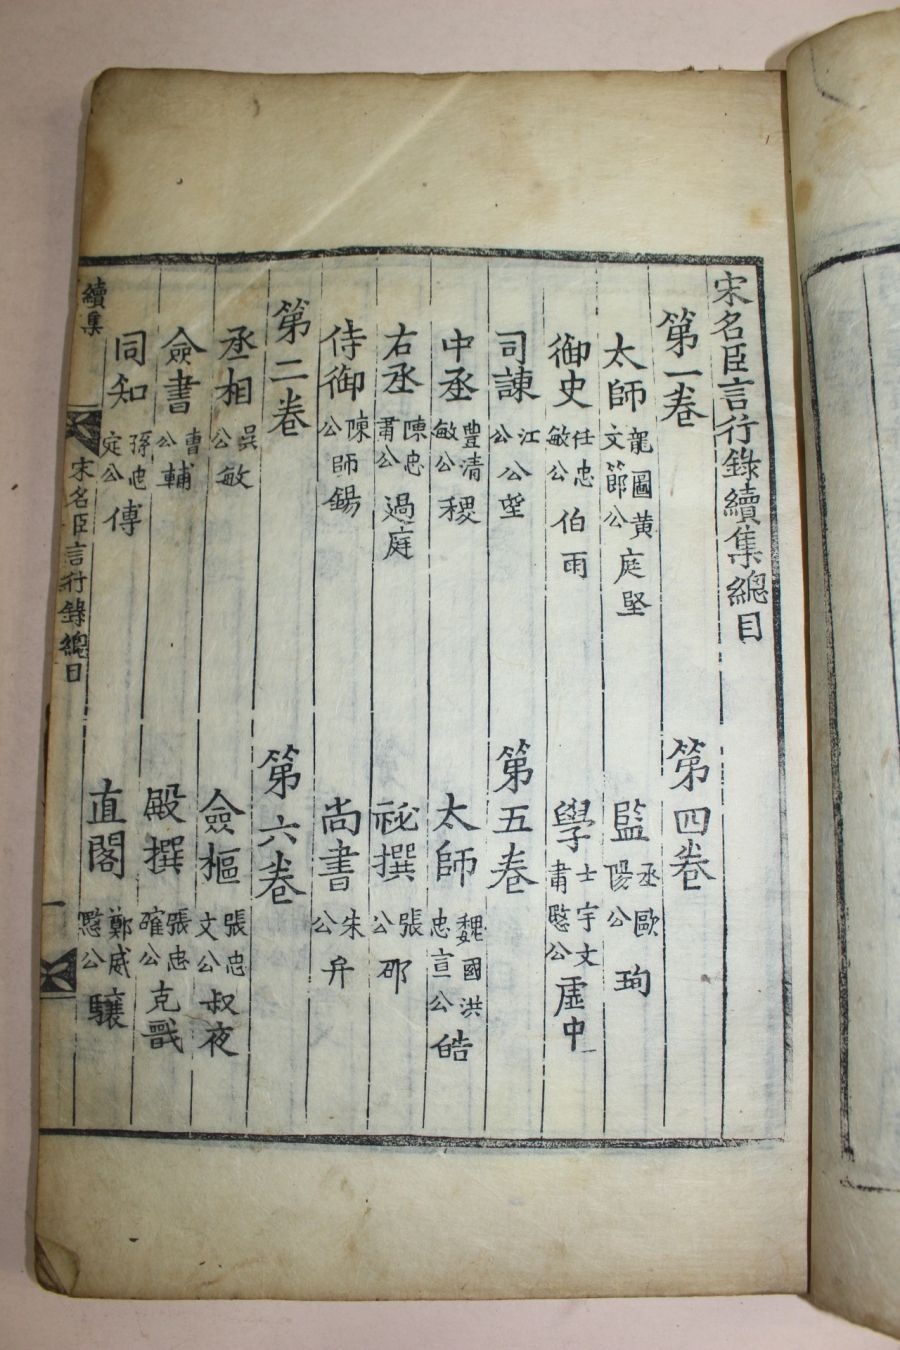 宋名臣言行錄續集總目
第一卷 第四卷
太師龍圖黄文節公庭堅 監丞歐陽公珣
御史任忠敏公伯雨 學士宇文肅愍公虛中
司諫江公公望 第五卷
中丞豐清敏公稷 太師魏國洪忠宣公皓
右丞陳忠肅公過庭 祕撰張公邵
侍御陳公師錫 尚書朱公弁
第二卷 第六卷
丞相吳公敏 僉樞張忠文公叔夜
僉書曹公輔 殿撰張忠確公克戩
同知孫忠定公傅 直閣鄭威愍公驤
續集 宋名臣言行錄總目 一